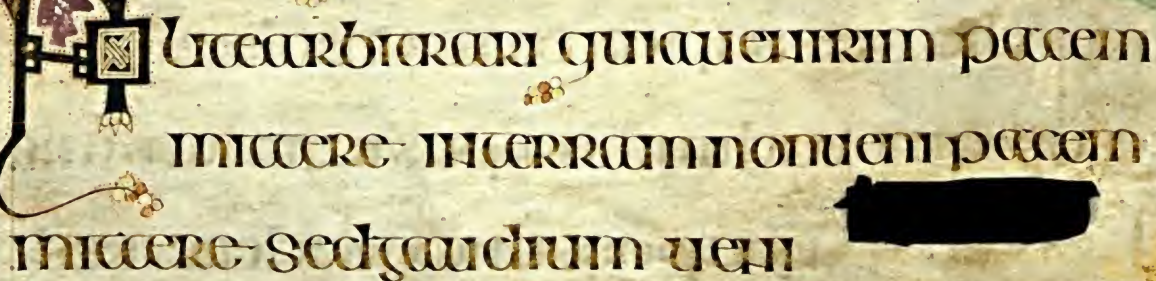 litearbitrari quiauenirim pacem
mittere interram nonueni pacem
mittere sedgaudium ueni